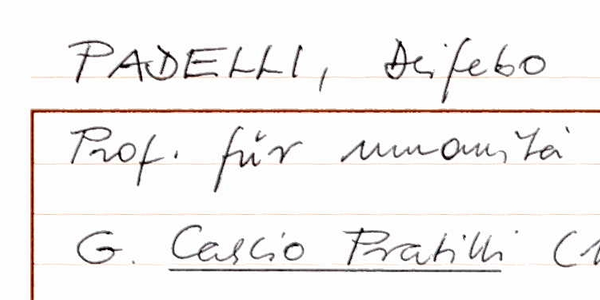 PADELLI, Deifebo
Prof. für umanità
G. Cascio Pratilli (1